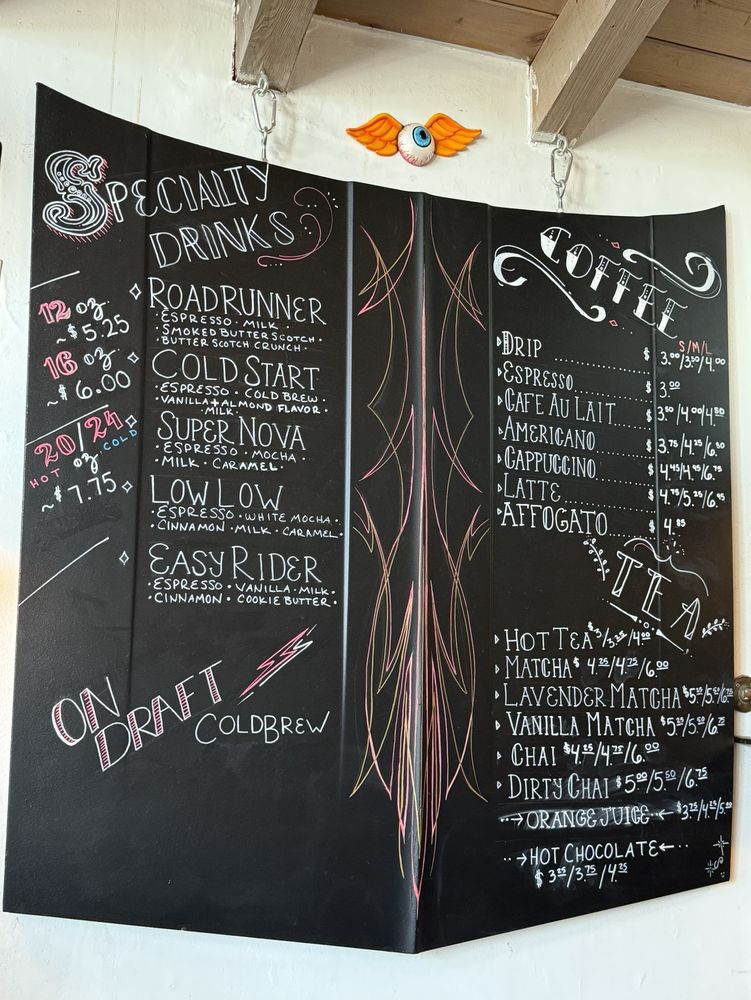 SPECIALTY
DRINKS
12 oz
~$5.25
16 oz
~$6.00
20/24 oz
HOT COLD
~$7.75
ROADRUNNER
·ESPRESSO·MILK·
SMOKED BUTTERSCOTCH·
BUTTERSCOTCH CRUNCH·
COLD START
·ESPRESSO·COLD BREW·
VANILLA+ALMOND FLAVOR·
MILK·
SUPER NOVA
·ESPRESSO·MOCHA·
·MILK·CARAMEL·
LOW LOW
·ESPRESSO·WHITE MOCHA·
·CINNAMON·MILK·CARAMEL·
EASY RIDER
·ESPRESSO·VANILLA·MILK·
·CINNAMON·COOKIE BUTTER·
ON
DRAFT
COLDBREW
COFFEE
S/M/L
DRIP $3.00/3.50/4.00
ESPRESSO $3.00
CAFE AU LAIT $3.50/4.00/4.50
AMERICANO $3.75/4.25/6.50
CAPPUCCINO $4.45/4.95/6.75
LATTE $4.75/5.25/6.95
AFFOGATO $4.85
TEA
HOT TEA $3/3.25/4.00
MATCHA $4.25/4.75/6.00
LAVENDER MATCHA
VANILLA MATCHA
CHAI $4.25/4.75/6.00
DIRTY CHAI $5.00/5.50/6.75
→ORANGE JUICE← $3.75/4.25/5.
→HOT CHOCOLATE←
$3.25/3.75/4.25